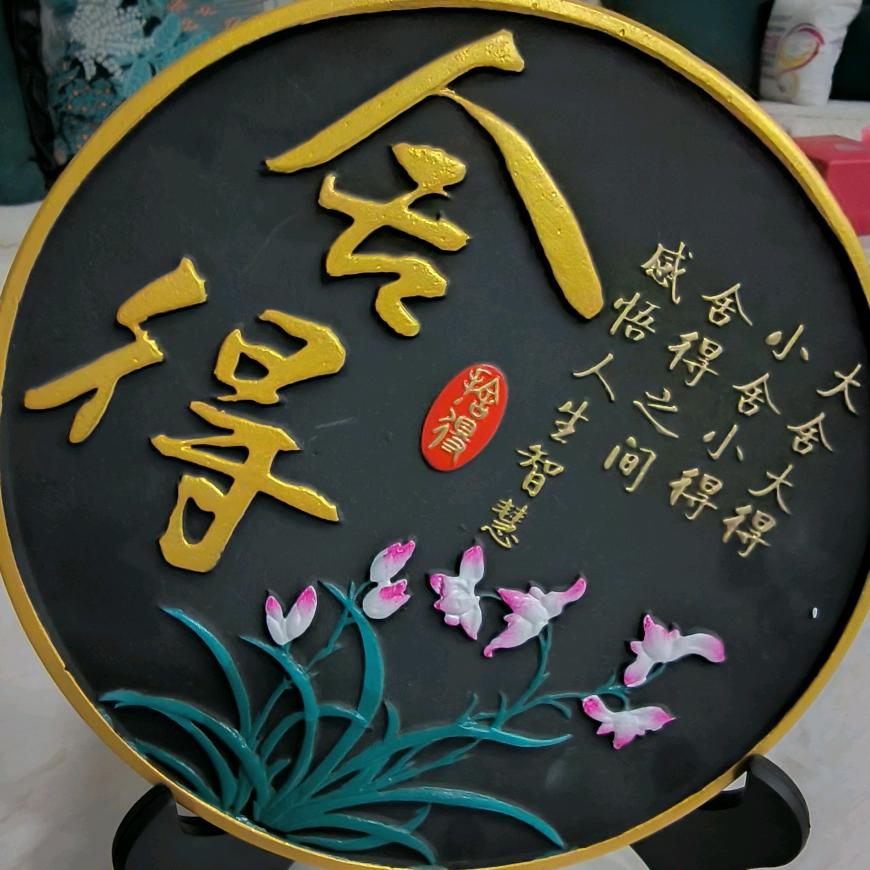 舍得
大舍大得
小舍小得
舍得之间
感悟人生智慧
捨得